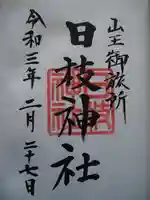 山王御祓所
日枝神社
令和三年二月二十七日